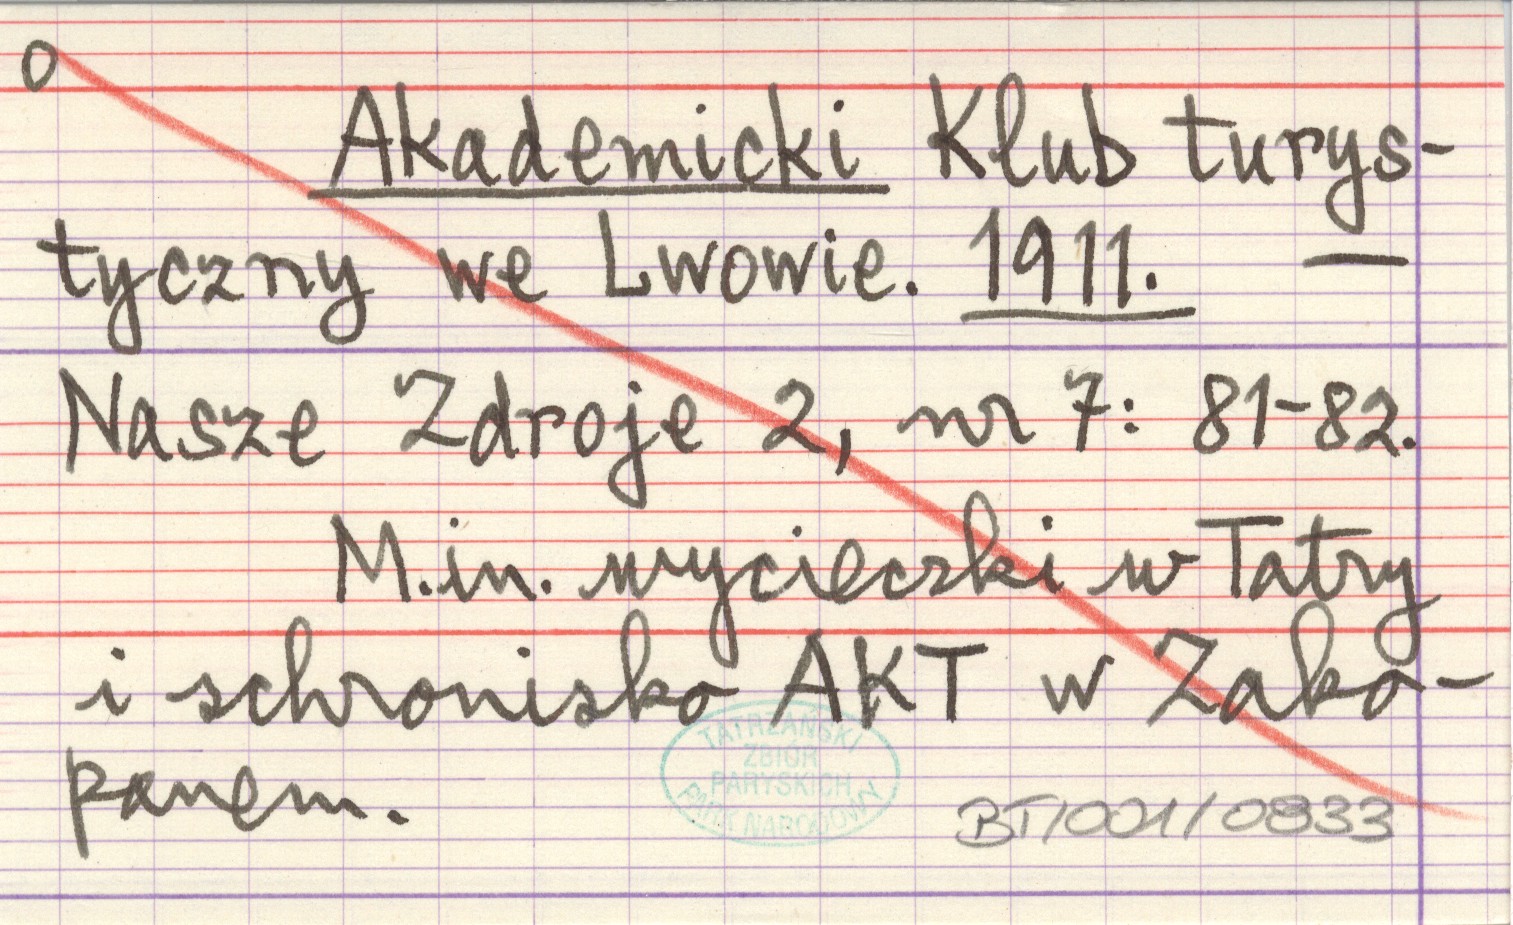 O
Akademicki Klub turys-
tyczny we Lwowie. 1911. —
Nasze Zdroje 2, nr 7: 81-82.
M.in. wycieczki w Tatry
i schronisko AKT w Zako-
panem.
TATRZAŃSKI
ZBIÓR
PARYSKICH
PARK NARODOWY
BT/001/0833